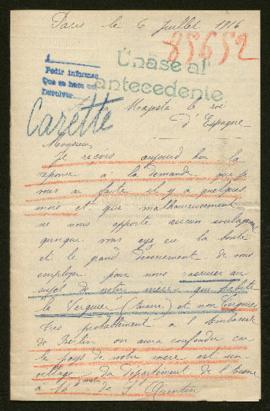 Paris le 6 Juillet 1916
85652
Únase al
antecedente
A
Pedir informes
Que se haga
Devolver
Carette
Majesté le roi
d'Espagne
Monsieur,
Je reçois aujourd'hui la
réponse à la demande que je
vous ai faite il y a quelques
mois et que malheureusement
ne nous apporte aucun soulagement
quoique vous aye eu la bonté
et le grand dévouement de vous
employer pour nous rassurer au
sujet de notre mère qui habite
le Verguier (Aisne) et non
très probablement à l'Ambassade
de Berlin on aura confondu car
le pays de notre mère est un
village du Département de l'Aisne
à la St Quentin